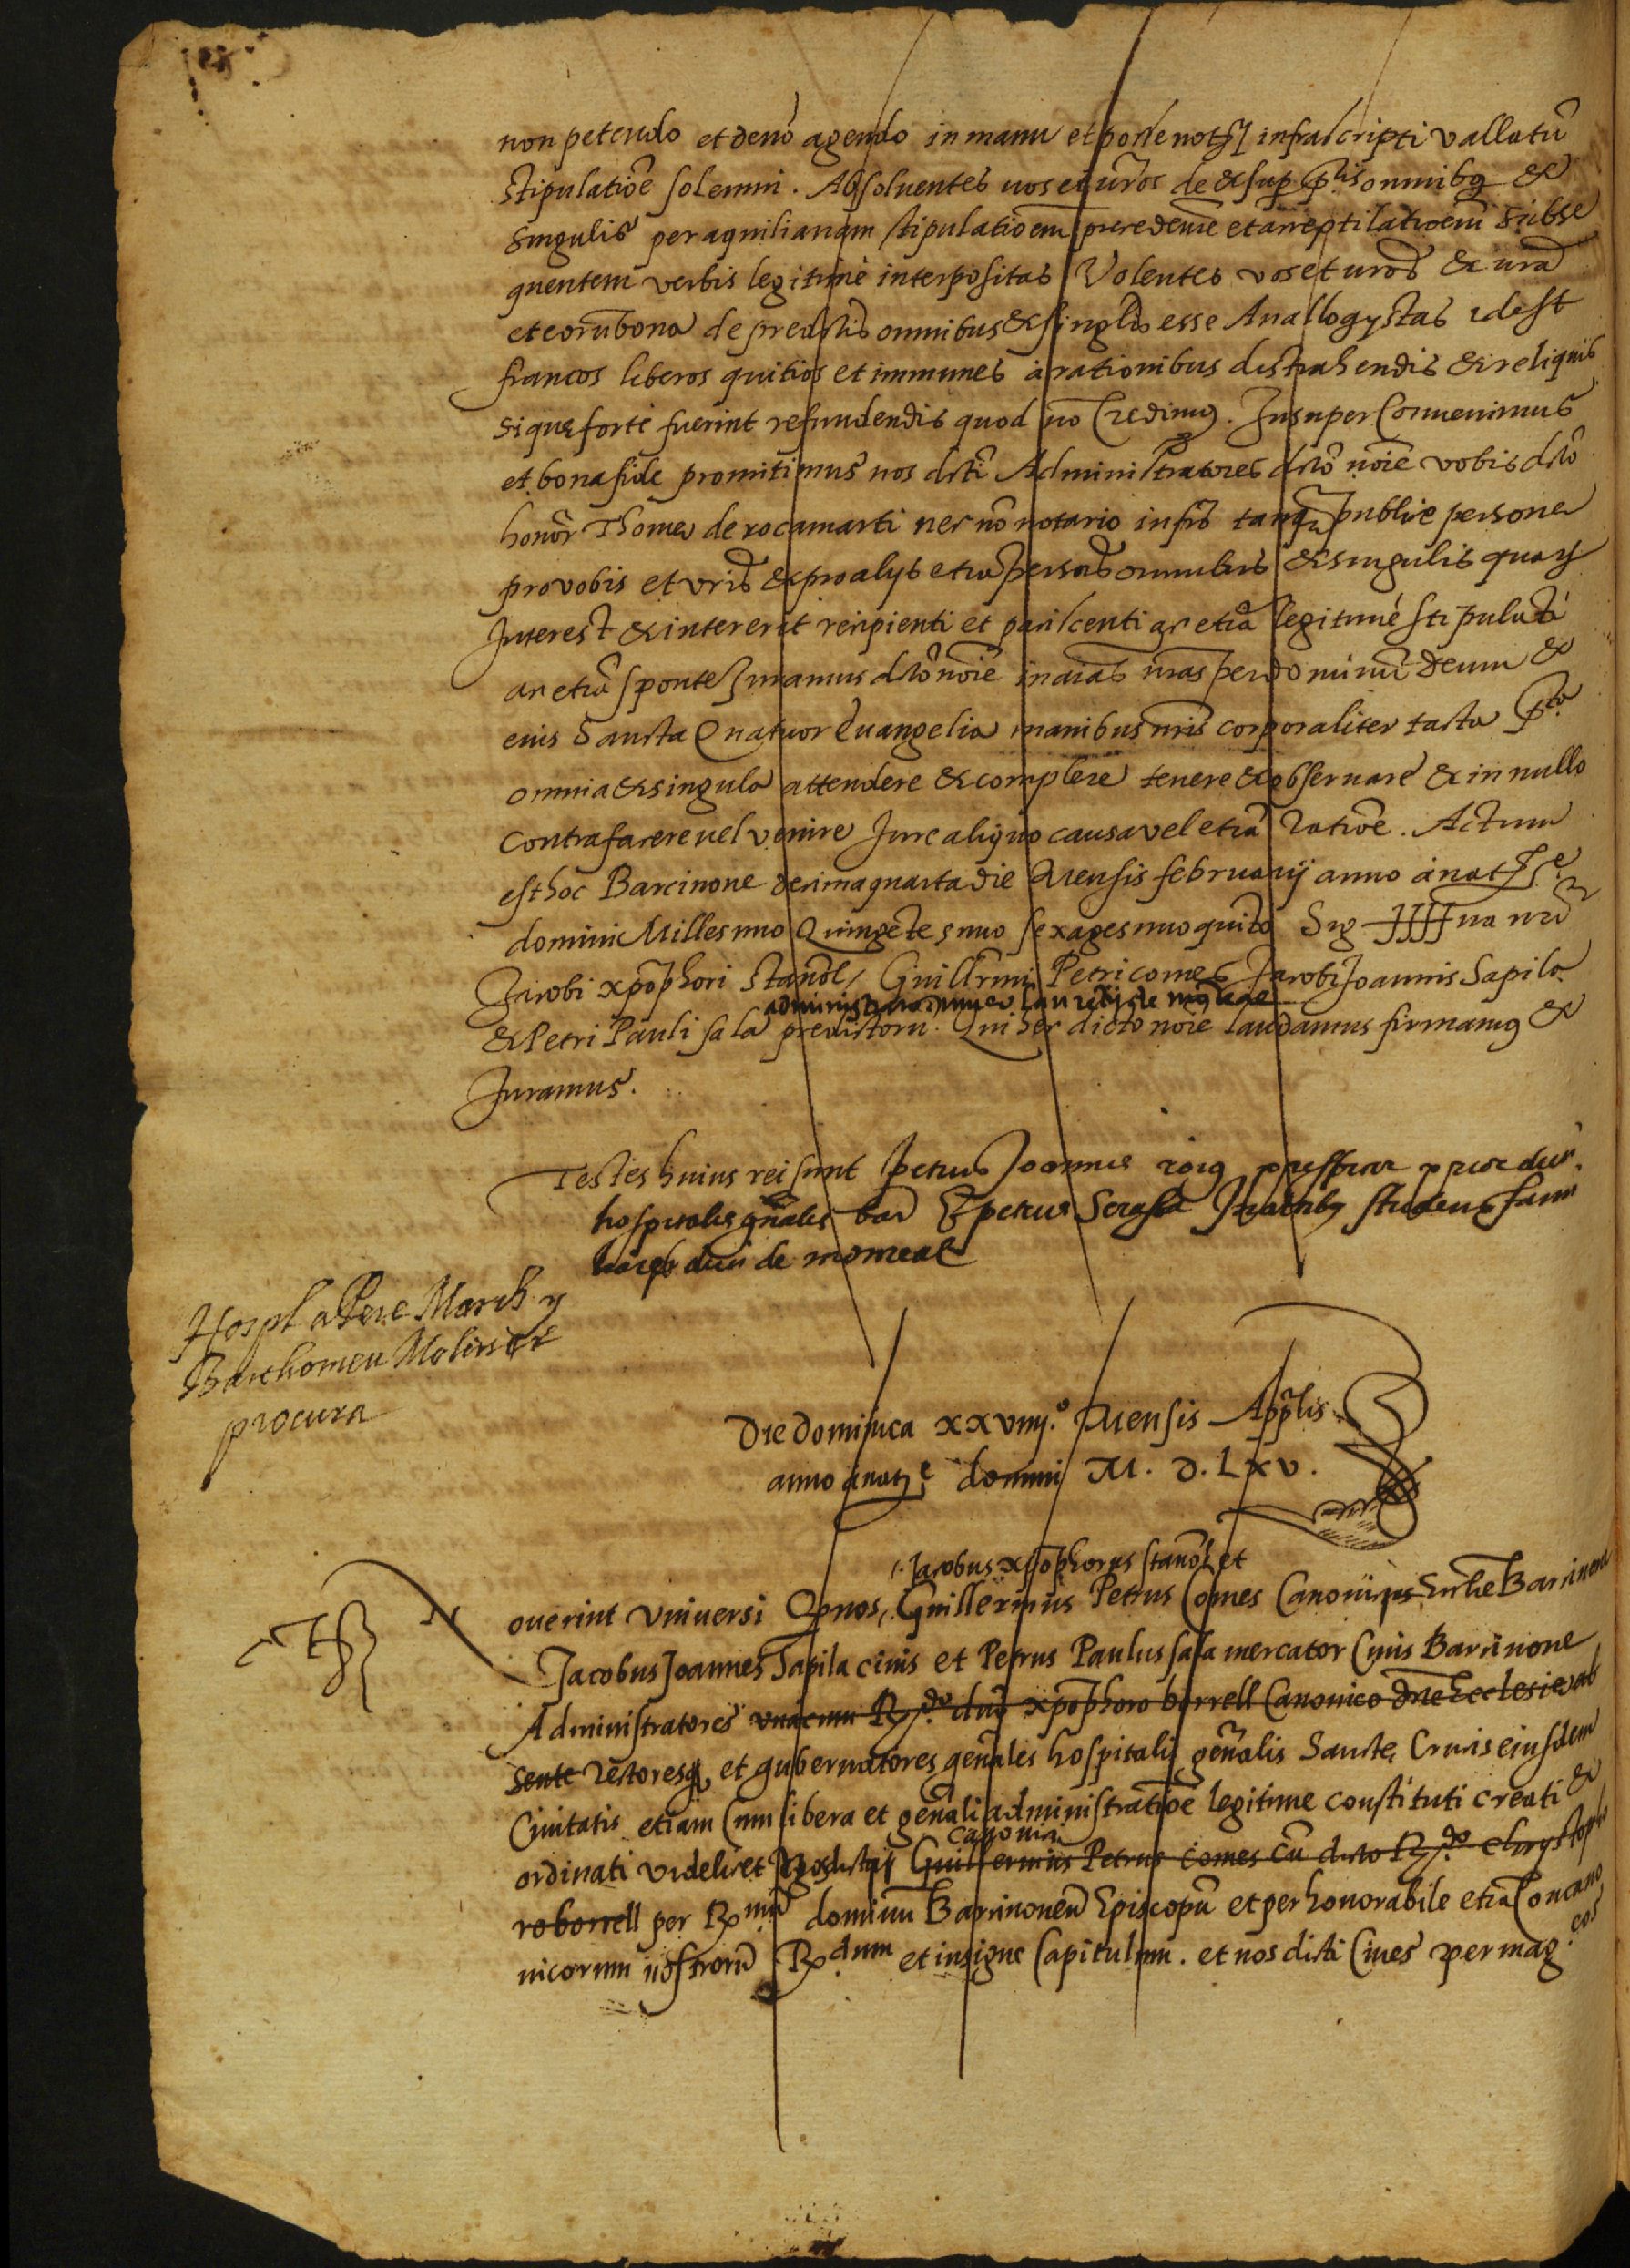 non petendo et de nõ agendo in manu et posse notʒ infrascripti vallatũ
stipulatiõe solemni. Absoluentes vos et ũros de & sup p̃tis omnibꝫ &
singulis per aquilianam stipulatioem precedente et acceptilatioem subse
quentem verbis legitime interpositas Volentes vos et ũros & ũra
et eorũ bona de predictis omnibus & singulis esse Anallogystas idest
francos liberos quitios et immunes à rationibus distrahendis & reliquis
si que forte fuerint refundendis quod nõ credimꝰ. Insuper Conuenimus
et bona fide promitimus nos dicti Administratores dicto noĩe vobis dicto
honor Thome de rocamarti nec nõ notario infrõ tanq̃ publice persone
pro vobis et ũris & pro alijs etiã personis omnibus & singulis quorʒ
Interest & intererit recipienti et paciscenti ac etiã legitimè stipulãti
ac etiã sponte Juramus dicto noĩe in aĩas ñras per dominũ deum &
eius Sancta Quatuor Euangelia manibus ñris corporaliter tacta p̃ta
omnia & singula attendere & complere tenere & obseruare & in nullo
contrafacere uel venire Jure aliquo causa vel etiã ratiõe. Actum
est hoc Barcinone decima quarta die Mensis februarij anno à natʒe
domini Millesimo Quingetesimo sexagesimo quĩto Sig++++na ñrũ
Jacobi xp̃ophori stanõl, Guillermi Petri comes Jacobi Joannis Sapila
administratorum
& Petri Pauli sala predictorũ. Qui hec dicto noĩe laudamus firmamꝰ &
Juramus.
Testes huius rei sunt petrus Joannes roig presbiter prior dicti
hospitalis gñalis bar & petrus studens fami
de
Hospl a Pere March y
Barthomeu Moliner
procura
Die dominica xxviiij.º Mensis Aprilis
anno à natʒe domini M. D. LXV.
Jacobus xp̃ophorus stanõl et
Nouerint vniuersi Q nos, Guillermus Petrus Comes Canonicus Ecclie Barcinone
Jacobus Joannes Sapila ciuis et Petrus Paulus sala mercator Ciuis Barcinone
Administratores vna cum R.do dno xp̃ophoro borrell Canonico dñe Ecclesie ab
sente rectoresqꝫ et gubernatores geñales hospitalis geñalis Sancte Crucis eiusdem
Ciuitatis etiam Cum libera et geñali administratioẽ legitime constituti creati &
canonici
ordinati videlicet Nos dicti Guillermus Petrus comes cũ dicto R.do Chrystopho
ro borrell per R.mũ dominũ Barcinoneñ Episcopũ et per honorabile etiã Concano
nicorum nostrorũ R.dum et insigne Capitulum. et nos dicti Ciues per mag.cos